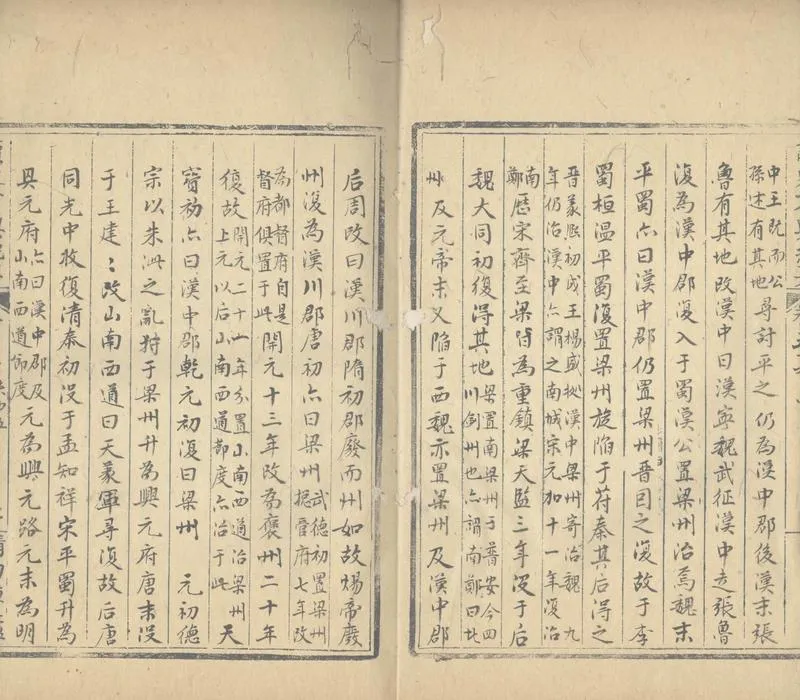 中王既而公
孫述有其地
尋討平之仍為漢中郡後漢末張
魯有其地改漢中曰漢寧魏武征漢中走張魯
復為漢中郡後入于蜀漢公置梁州治焉魏末
平蜀亦曰漢中郡仍置梁州晉因之復故于李
蜀桓温平蜀復置梁州旋陷于苻秦其后得之
晉義熙初成王楊盛㨿漢中梁州寄治魏九
年仍治漢中亦謂之南城宋元加十一年復治
南
鄭
歷宋齊至梁皆為重鎮梁天監三年没于后
魏大同初復得其地
梁置南梁州于普安今四
川劍州也亦謂南鄭曰北
州
及元帝末又陷于西魏亦置梁州及漢中郡
后周改曰漢川郡隋初郡廢而州如故煬帝廢
州復為漢川郡唐初亦曰梁州
武德初置梁州
摠管府七年改
為都督府自是
督府俱置于此
開元十三年改為襃州二十年
復故
開元二十一年分置山南西道治梁州
上元以后山南西道都度亦治于此
天
寳初亦曰漢中郡乾元初復曰梁州
元初德
宗以朱泚之亂狩于梁州升為興元府唐末没
于王建：改山南西道曰天義軍尋復故后唐
同光中收復清泰初没于孟知祥宋平蜀升為
興元府
亦曰漢中郡及
山南西道節度
元為興元路元末為明